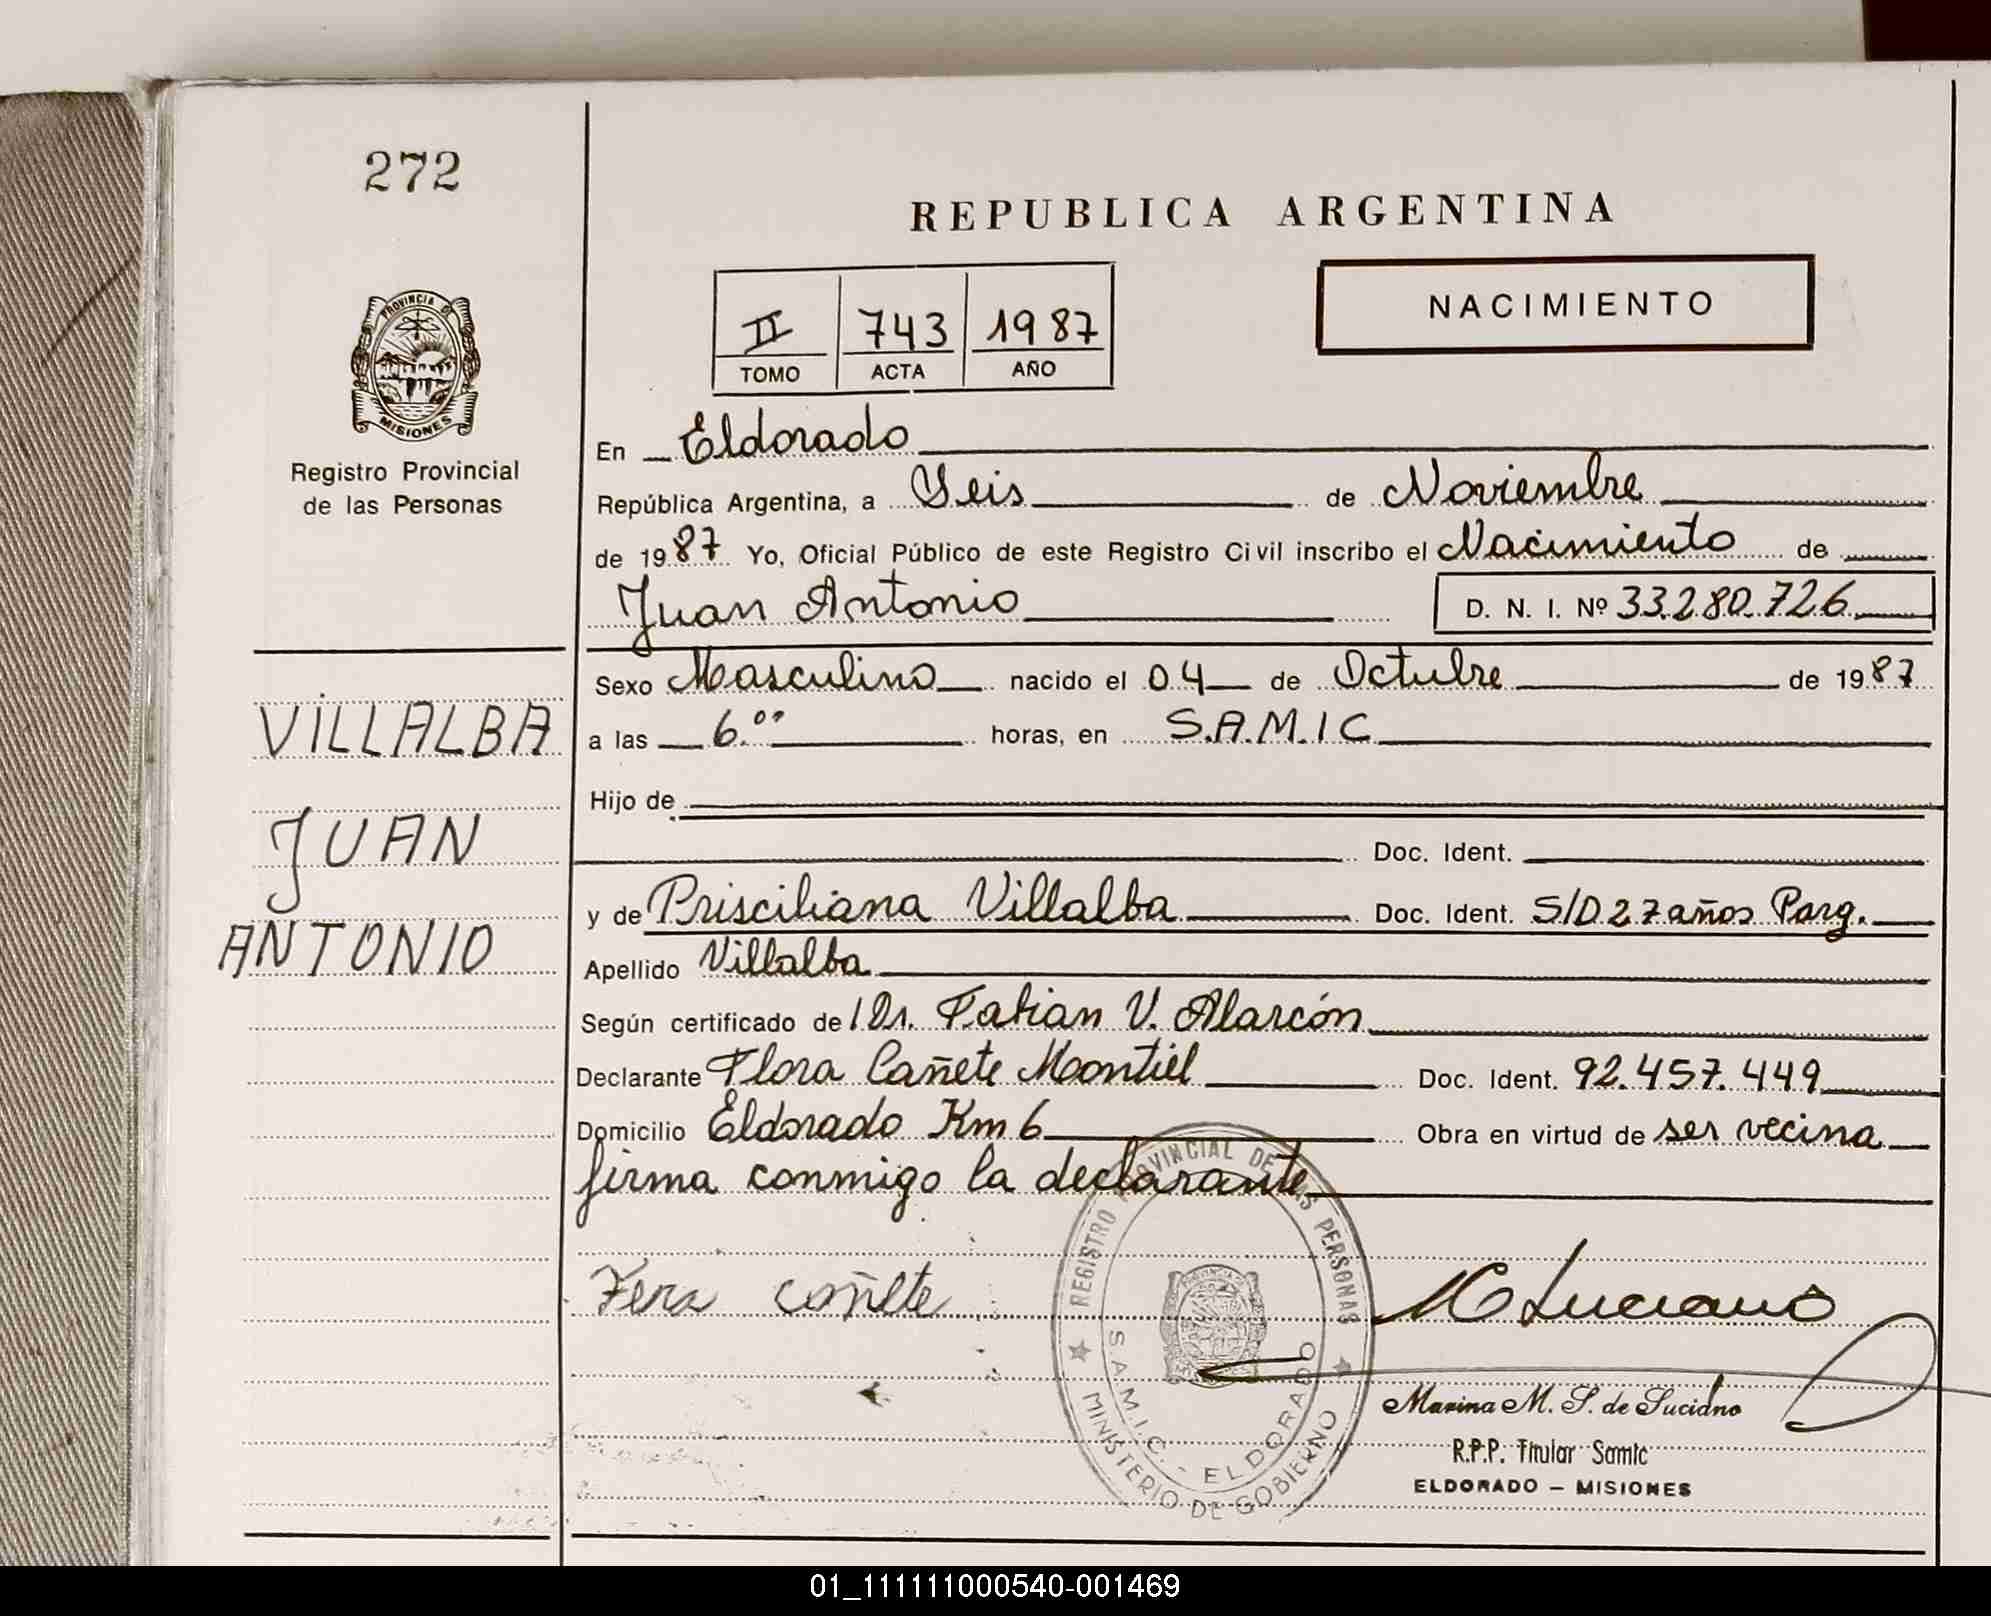 272
REPUBLICA ARGENTINA
NACIMIENTO
II 743 1987
TOMO ACTA AÑO
PROVINCIA DE
MISIONES
Registro Provincial
de las Personas
VILLALBA
JUAN
ANTONIO
En Eldorado
República Argentina, a Seis de Noviembre
de 1987 Yo, Oficial Público de este Registro Civil inscribo el Nacimiento de
Juan Antonio D. N. I. Nº 33.280.726
Sexo Masculino nacido el 04 de Octubre de 1987
a las 6.00 horas, en S.A.M.I C
Hijo de
Doc. Ident.
y de Prisciliana Villalba Doc. Ident. S/D 27 años Parg.
Apellido Villalba
Según certificado del Dr. Fabian V. Alarcón
Declarante Flora Cañete Montiel Doc. Ident. 92.457.449
Domicilio Eldorado Km 6 Obra en virtud de ser vecina
firma conmigo la declarante
REGISTRO PROVINCIAL DE LAS PERSONAS
S.A.M.I.C. - ELDORADO
MINISTERIO DE GOBIERNO
cañete
M Luciano
Marina M. S. de Luciano
R.P.P. Titular Samic
ELDORADO – MISIONES
01_111111000540-001469